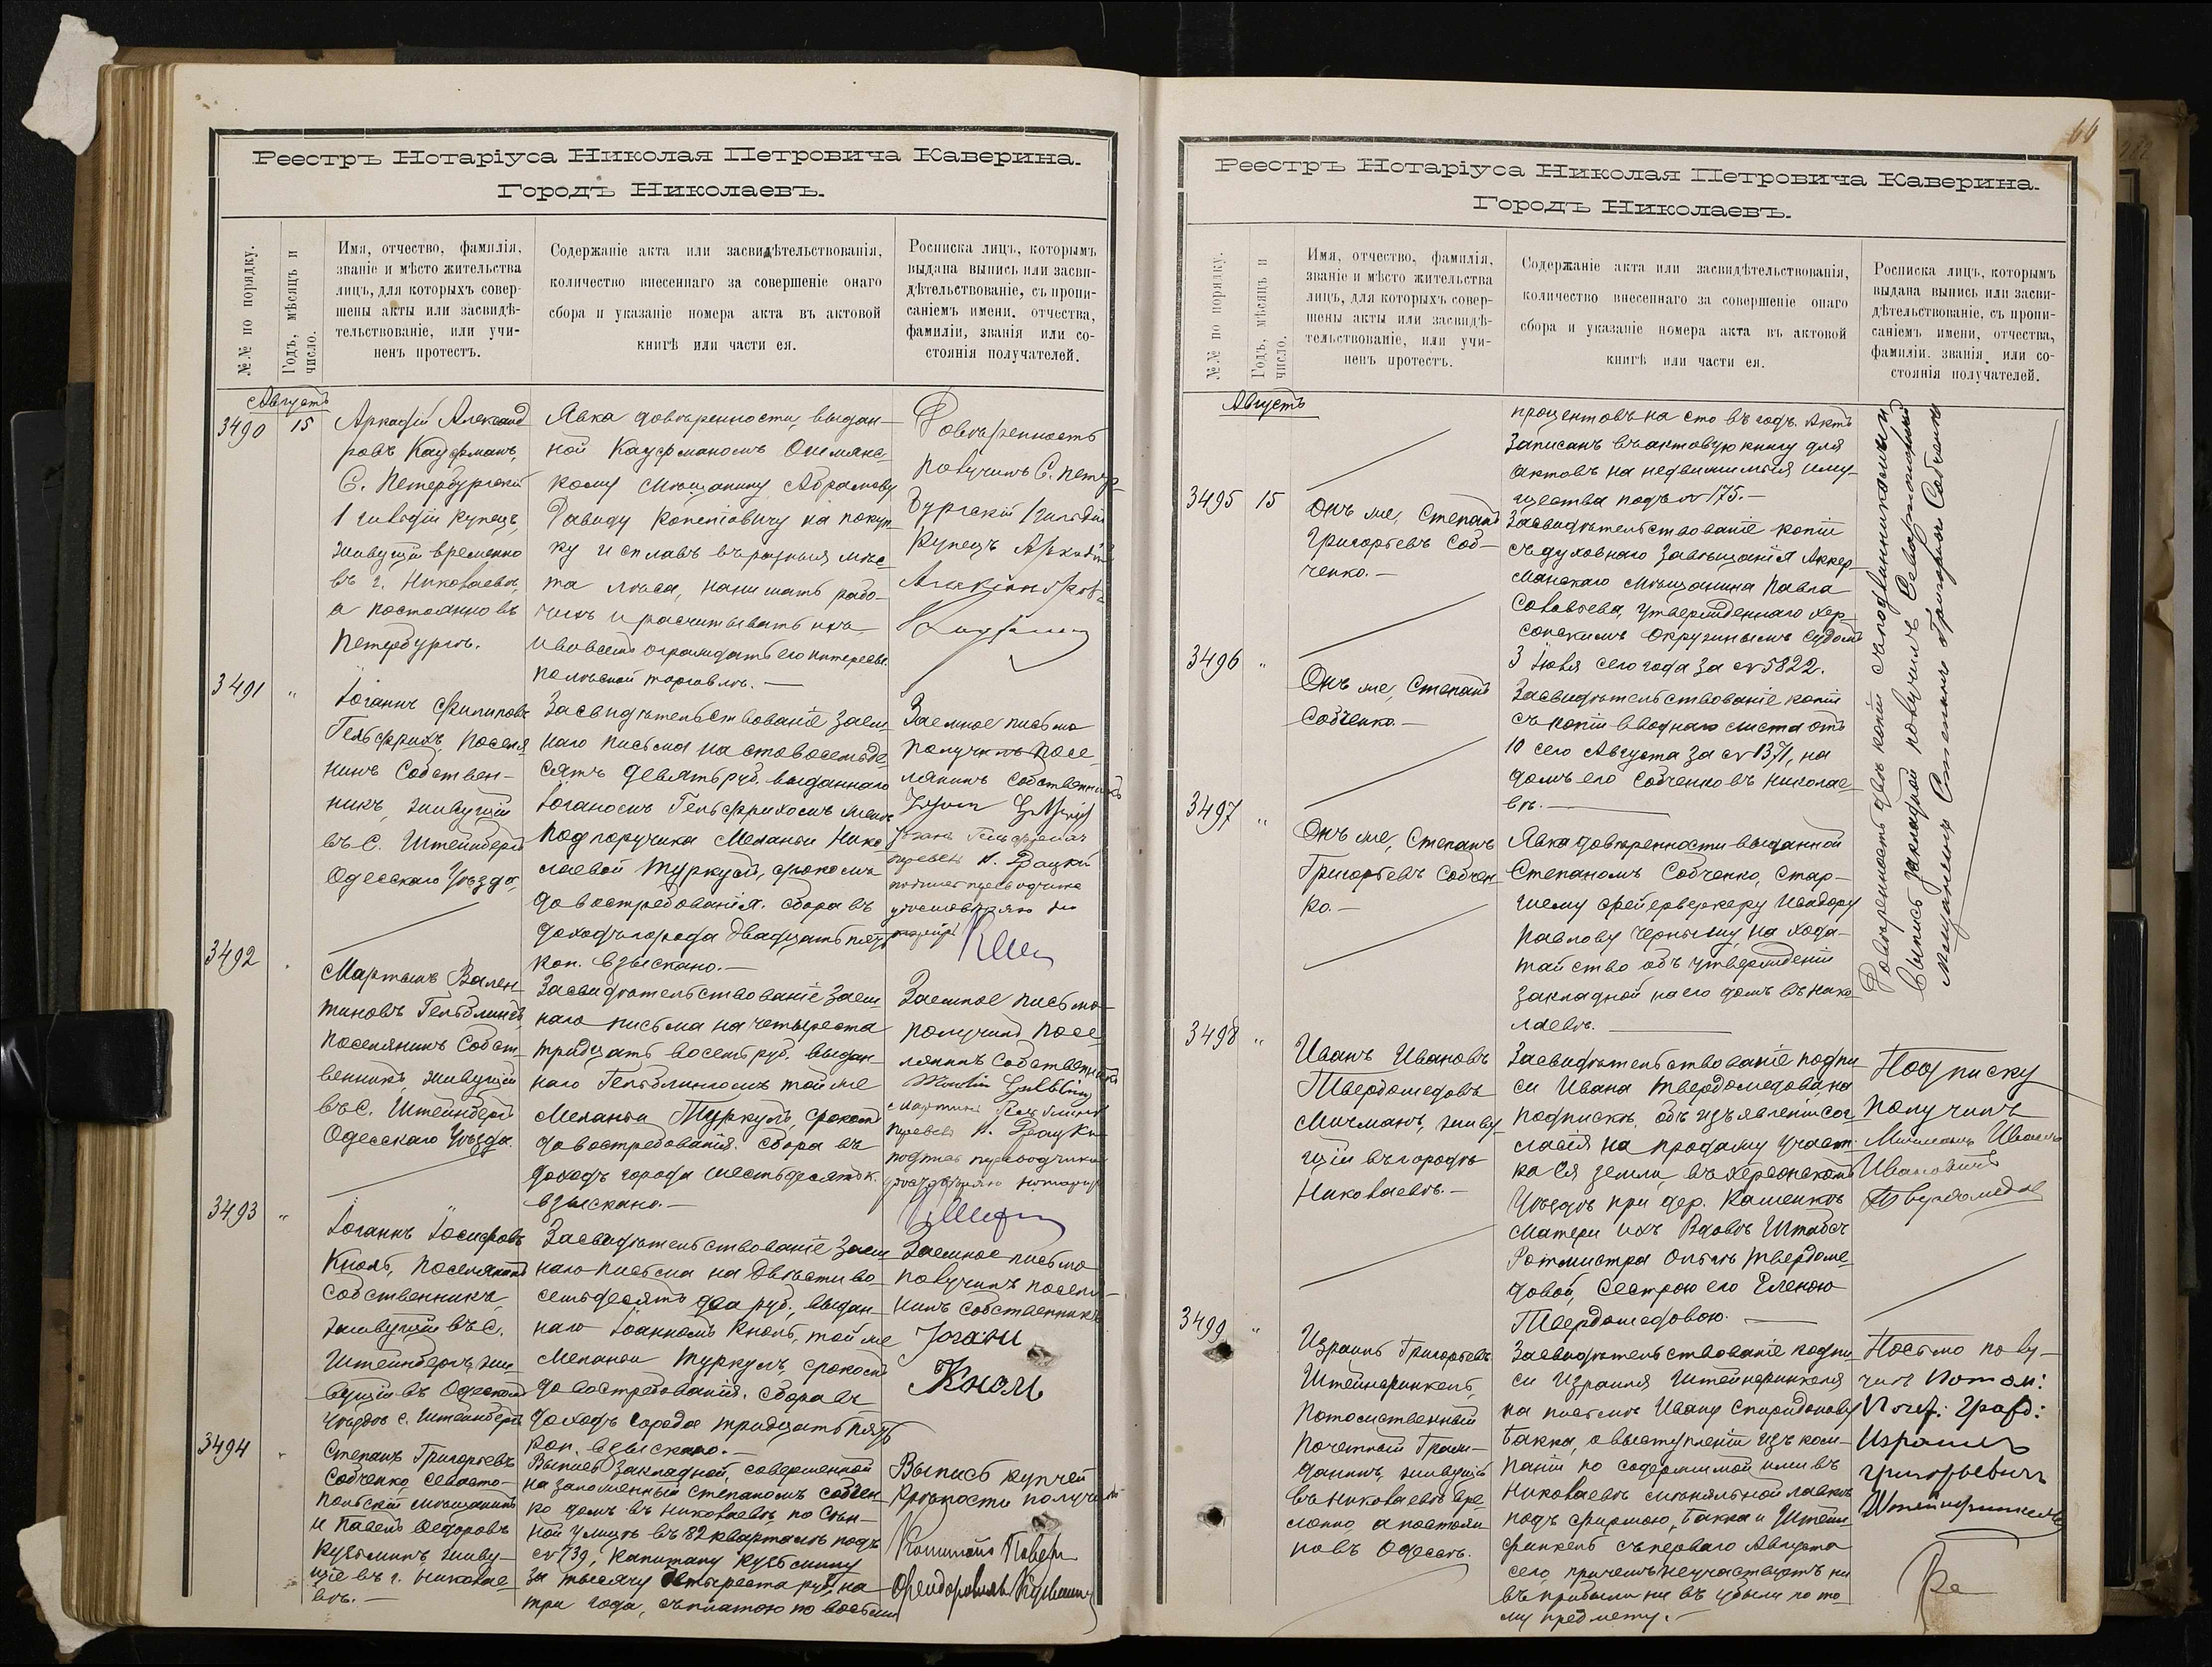 Реестръ Нотаріуса Николая Петровича Каверина.
Городъ Николаевъ.
№№ по порядку.
Годъ, мѣсяцъ и
число.
Имя, отчество, фамилія,
званіе и мѣсто жительства
лицъ, для которыхъ совер-
шены акты или засвидѣ-
тельствованіе, или учи-
ненъ протестъ.
Содержаніе акта или засвидѣтельствованія,
количество внесеннаго за совершеніе онаго
сбора и указаніе номера акта въ актовой
книгѣ или части ея.
Росписка лицъ, которымъ
выдана выпись или засви-
дѣтельствованіе, съ пропи-
саніемъ имени. отчества,
фамиліи, званія или со-
стоянія получателей.
Августъ
3490
15
Аркадій Александ
ровъ Кауфманъ,
С. Петербургскій
1 гильдіи купецъ,
живущій временно
въ г. Николаевѣ,
а постоянно въ
Петербургѣ.
Явка довѣренности, выдан-
ной Кауфманомъ Ошмянс-
кому мѣщанину Абрамову
Давиду Копелiовичу на покуп-
ку и сплавъ въ разныя мѣс-
та лѣса, нанимать рабо-
чихъ и расчитывать ихъ
и вовсемъ ограждать его интересы
по лѣсной торговлѣ. —
Довѣренность
получилъ С. Петер-
бургскій 1 гильдіи
купецъ Аркадій
3491
"
Іоганъ Филиповъ
Гельфрихъ, поселя
нинъ собствен-
никъ, живущій
въ С. Штейнбергѣ
Одесскаго уѣзда.
Засвидѣтельствованіе заем
наго письма на стовосемьде
сятъ девять руб. выданнаго
Іоганомъ Гельфрихомъ женѣ
подпоручика Меланьи Нико
лаевой Туркулъ, срокомъ
до востребованія. Сбора въ
доходъ города двадцать пять
коп. взыскано. —
Заемное письмо
получилъ посе
лянинъ собственникъ
3492
Мартынъ Вален-
тиновъ Гельблингъ,
поселянинъ собст-
венникъ, живущій
въ С. Штейнбергѣ
Одесскаго уѣзда.
Засвидѣтельствованіе заем
наго письма на четыреста
тридцать восемь руб. выдан-
наго Гельблингомъ той же
Меланьи Туркулъ, срокомъ
до востребованія. Сбора въ
доходъ города шестьдесятъ к.
взыскано. —
Заемное письмо
получилъ посе
лянинъ собственникъ
3493
"
Іоганъ Іосифовъ
Кноль, поселянинъ
собственникъ,
живущій въ С.
Штейнбергѣ, жи-
вущій въ Одесскомъ
уѣздѣ с. Штейнбергѣ
Засвидѣтельствованіе заем
наго письма на двѣсти во
семьдесятъ два руб., выдан-
наго Іоанномъ Кноль, той же
Меланьи Туркулъ, срокомъ
до востребованія. Сбора въ
доходъ города тридцать пять
коп. взыскано. —
Заемное письмо
получилъ поселя-
нинъ собственникъ
Іоганн
Кноль
3494
Степанъ Григорьевъ
Собченко, севасто-
польскій мѣщанинъ
и Павелъ Федоровъ
Кузьминъ, живу-
щіе въ г. Николае-
вѣ. —
Выпись закладной, совершенной
на заложенный Степаномъ Собчен-
ко домъ въ Николаевѣ, по Сѣн-
ной улицѣ въ 82 кварталѣ подъ
№ 739, капитану Кузьмину
за тысячу четыреста руб. на
три года, съ платою по восьми
Выпись купчей
крѣпости получилъ
Капитанъ Павелъ
Феодоровичъ Кузьминъ
66
Реестръ Нотаріуса Николая Петровича Каверина.
Городъ Николаевъ.
№№ по порядку.
Годъ, мѣсяцъ и
число.
Имя, отчество, фамилія,
званіе и мѣсто жительства
лицъ, для которыхъ совер-
шены акты или засвидѣ-
тельствованіе, или учи-
ненъ протестъ.
Содержаніе акта или засвидѣтельствованія,
количество внесеннаго за совершеніе онаго
сбора и указаніе номера акта въ актовой
книгѣ или части ея.
Росписка лицъ, которымъ
выдана выпись или засви-
дѣтельствованіе, съ пропи-
саніемъ имени, отчества,
фамиліи. званія. или со-
стоянія получателей.
Августъ
процентовъ на сто въ годъ. Актъ
записанъ въ актовую книгу для
актовъ на недвижимыя иму-
щества подъ № 175. —
3495
15
Онъ же, Степанъ
Григорьевъ Соб-
ченко. —
Засвидѣтельствованіе копіи
съ духовнаго завѣщанія Аккер-
манскаго мѣщанина Павла
Соловьева, утвержденнаго Хер-
сонскимъ окружнымъ судомъ
3 Іюля сего года за № 5822.
3496
"
Онъ же, Степанъ
Собченко. —
Засвидѣтельствованіе копіи
съ копіи вводнаго листа отъ
10 сего Августа за № 1371, на
домъ его Собченко въ Николае-
вѣ. —
3497
"
Онъ же, Степанъ
Григорьевъ Собчен-
ко. —
Явка довѣренности выданной
Степаномъ Собченко, стар-
шему фейерверкеру Исидору
Павлову Черныму, на хода-
тайство объ утвержденіи
закладной на его домъ въ Нико-
лаевѣ. —
Довѣренность двѣ копіи съ подлинниками и
выпись закладной получилъ Севастопольскій
мѣщанинъ Степанъ Григорьевъ Собченко
3498
"
Иванъ Ивановъ
Твердомедовъ
Мичманъ, живу-
щій въ городѣ
Николаевѣ. —
Засвидѣтельствованіе подпи
си Ивана Твердомедова, на
подпискѣ, объ изъявленіи сог
ласія на продажу участ-
ка ея земли, въ Херсонскомъ
уѣздѣ при дер. Каменкѣ
матери ихъ вдовѣ Штабсъ
Ротмистра Ольгѣ Твердоме
довой, сестрою его Еленою
Твердомедовою. —
Подписку
получилъ
Мичманъ Иванъ
Ивановичъ
Твердомедовъ
3499
"
Израиль Григорьевъ
Штейнфинкель,
потомственный
почетный граж-
данинъ, живущій
въ Николаевѣ вре-
менно, а постоян-
но въ Одессѣ.
Засвидѣтельствованіе подпи
си Израиля Штейнфинкеля
на письмѣ Ивану Спиридонову
Бакка, о выступленіи изъ ком-
паніи по содержимой ими въ
Николаевѣ мѣняльной лавкѣ
подъ фирмою „Бакка и Штейн-
финкель съ перваго Августа
сего, причемъ неучаствуетъ ни
въ прибыли ни въ убыли по то-
му предмету. —
Письмо полу-
чилъ Потом:
Почет: Гражд:
Израиль
Григорьевичъ
Штейнфинкель